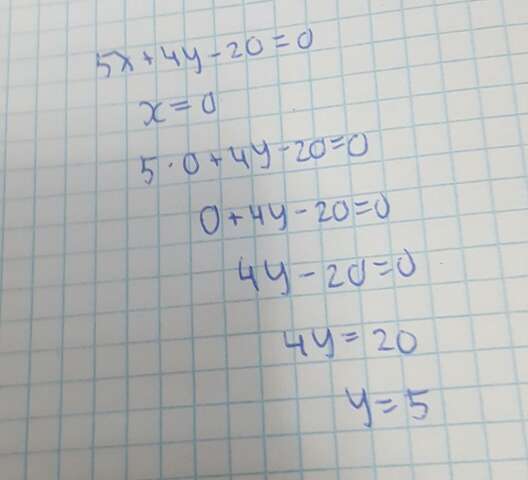 5x+4y-20=0
x=0
5·0+4y-20=0
0+4y-20=0
4y-20=0
4y=20
y=5